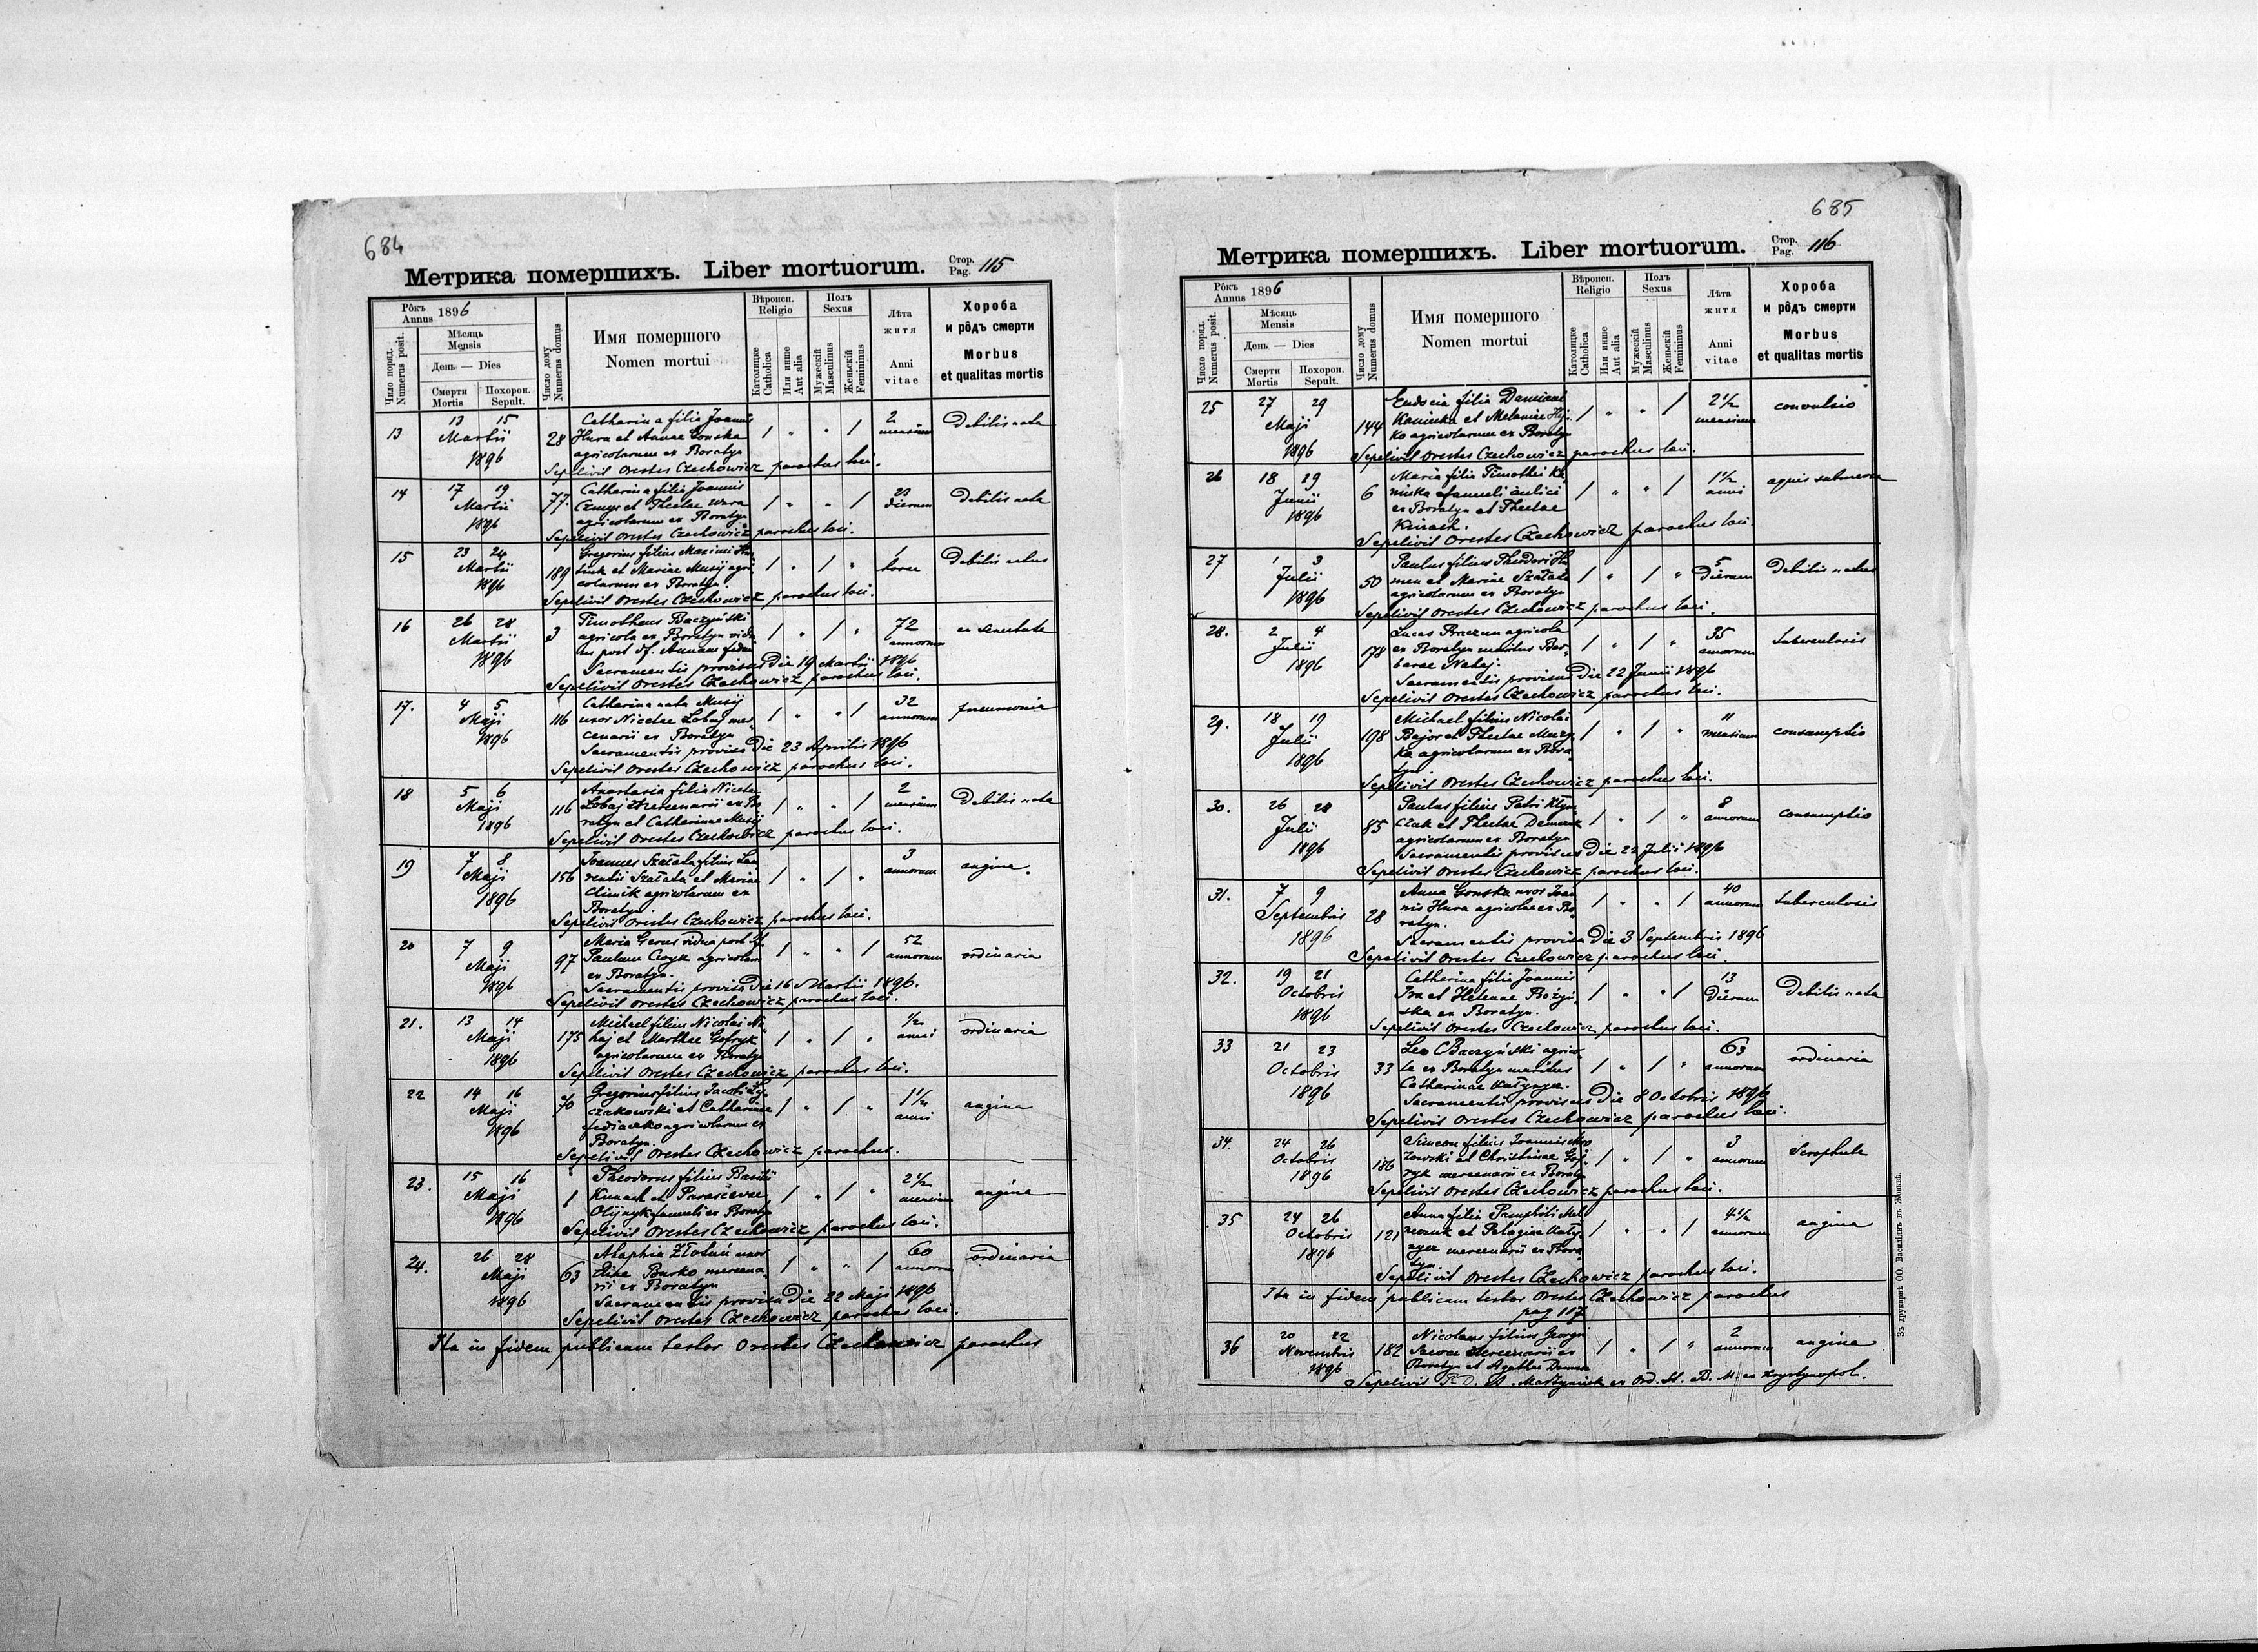 684
Метрика помершихъ. Liber mortuorum. Стор. Pag. 115
Рôкъ Annus 1896
Число поряд. Numerus posit.
Мѣсяць Mensis
День — Dies
Смерти Mortis
Похорон. Sepult.
Число дому Numerus domus
Имя помершого
Nomen mortui
Вѣроисп. Religio
Католицке Catholica
Или инше Aut alia
Полъ Sexus
Мужескій Masculinus
Женьскій Femininus
Лѣта житя
Anni vitae
Хороба
и рôдъ смерти
Morbus
et qualitas mortis
13 13 15 Martii 1896 28 Catharina filia Joannis / " " / 2 mensium Debilis nata
Hura et Annae Gonska
agricolarum ex Boratyn
Sepelivit Orestes Czechowicz parochus loci.
14 17 19 Martii 1896 77. Catharina filia Joannis / " " / 23 dierum Debilis nata
Czmyr et Theclae
agricolarum ex Boratyn
Sepelivit Orestes Czechowicz parochus loci.
15 23 24 Martii 1896 189 Gregorius filius Maximi / " / " 1 horae Debilis natus
et Mariae Musij agri-
colarum ex Boratyn.
Sepelivit Orestes Czechowicz parochus loci.
16 26 28 Martii 1896 3 Timotheus Baczyński / " / " 72 annorum ex senectute
agricola ex Boratyn vidu-
us post df. Annam
Sacramentis provisus Die 19 Martii 1896
Sepelivit Orestes Czechowicz parochus loci.
17. 4 5 Maji 1896 116 Catharina nata Musij / " " / 32 annorum pneumonia
uxor Nicetae Lobaj mer-
cenarii ex Boratyn
Sacramentis provisa Die 23 Aprilis 1896
Sepelivit Orestes Czechowicz parochus loci.
18 5 6 Maji 1896 116 Anastasia filia Nicetae / " " / 2 mensium Debilis nata
Lobaj mercenarii ex Bo-
ratyn et Catharinae Musij
Sepelivit Orestes Czechowicz parochus loci.
19 7 8 Maji 1896 156 Joannes Szałata filius Lau- / " / " 3 annorum angina.
rentii Szałata et Mariae
Climik agricolarum ex
Boratyn.
Sepelivit Orestes Czechowicz parochus loci.
20 7 9 Maji 1896 97 Maria Gerus vidua post df. / " " / 52 annorum ordinaria
Paulum agricolam
ex Boratyn.
Sacramentis provisa Die 16 Martii 1896.
Sepelivit Orestes Czechowicz parochus loci.
21. 13 14 Maji 1896 175 Michael filius Nicolai Na- / " / " 1/2 anni ordinaria
haj et Marthae Gofryk
agricolarum ex Boratyn
Sepelivit Orestes Czechowicz parochus loci.
22 14 16 Maji 1896 70 Gregorius filius Jacobi Ły- / " / " 1 1/2 anni angina
czakowski et Catharinae
agricolarum ex
Boratyn.
Sepelivit Orestes Czechowicz parochus.
23. 15 16 Maji 1896 1 Theodorus filius Basilii / " / " 2 1/2 mensium angina
Kunach et Parascevae
Olijnyk famuli ex Boratyn
Sepelivit Orestes Czechowicz parochus loci.
24. 26 28 Maji 1896 63 Ahaphia uxor / " " / 60 annorum ordinaria
Eliae Burko mercena-
rii ex Boratyn
Sacramentis provisa Die 22 Maji 1896
Sepelivit Orestes Czechowicz parochus loci.
Ita in fidem publicam testor Orestes Czechowicz parochus
685
Метрика помершихъ. Liber mortuorum. Стор. Pag. 116
Рôкъ Annus 1896
Число поряд. Numerus posit.
Мѣсяць Mensis
День — Dies
Смерти Mortis
Похорон. Sepult.
Число дому Numerus domus
Имя помершого
Nomen mortui
Вѣроисп. Religio
Католицке Catholica
Или инше Aut alia
Полъ Sexus
Мужескій Masculinus
Женьскій Femininus
Лѣта житя
Anni vitae
Хороба
и рôдъ смерти
Morbus
et qualitas mortis
25 27 29 Maji 1896 144 Eudocia filia Damiani / " " / 2 1/2 mensium convulsio
Kaminka et Melaniae Hij-
ko agricolarum ex Boratyn
Sepelivit Orestes Czechowicz parochus loci.
26 18 19 Junii 1896 6 Maria filia Timothei Ka- / " " / 1 1/2 anni aquis submersa
minka famuli aulici
ex Boratyn et Theclae
Kunach.
Sepelivit Orestes Czechowicz parochus loci.
27 1 3 Julii 1896 50 Paulus filius Theodori / " / " 5 dierum Debilis natus
et Mariae Szałata
agricolarum ex Boratyn
Sepelivit Orestes Czechowicz parochus loci.
28. 2 4 Julii 1896 178 Lucas agricola / " / " 35 annorum tuberculosis
ex Boratyn maritus Bar-
barae Nahaj.
Sacramentis provisus Die 22 Junii 1896
Sepelivit Orestes Czechowicz parochus loci.
29. 18 19 Julii 1896 198 Michael filius Nicolai / " / " 11 mensium consumptio
Bajor et Theclae Muzy-
ka agricolarum ex Bora-
tyn
Sepelivit Orestes Czechowicz parochus loci.
30. 26 28 Julii 1896 85 Paulus filius Petri Klym- / " / " 8 annorum consumptio
czak et Theclae Demczuk
agricolarum ex Boratyn
Sacramentis provisus Die 22 Julii 1896
Sepelivit Orestes Czechowicz parochus loci.
31. 7 9 Septembris 1896 28 Anna Gonska uxor Joan- / " " / 40 annorum tuberculosis
nis Hura agricolae ex Bo-
ratyn.
Sacramentis provisa Die 3 Septembris 1896
Sepelivit Orestes Czechowicz parochus loci.
32. 19 21 Octobris 1896 Catharina filia Joannis / " " / 13 dierum Debilis nata
et Helenae Bożyń-
ska ex Boratyn.
Sepelivit Orestes Czechowicz parochus loci.
33 21 23 Octobris 1896 33 Leo Baczyński agrico- / " / " 63 annorum ordinaria
la ex Boratyn maritus
Catharinae
Sacramentis provisus Die 8 Octobris 1896
Sepelivit Orestes Czechowicz parochus loci.
34. 24 26 Octobris 1896 186 Simeon filius Joannis / " / " 3 annorum Scrophule
et Christinae Gof-
ryk mercenarii ex Boratyn
Sepelivit Orestes Czechowicz parochus loci.
35 24 26 Octobris 1896 121 Anna filia Pamphili / " " / 4 1/2 annorum angina
et Pelagiae
mercenarii ex Bora-
tyn
Sepelivit Orestes Czechowicz parochus loci.
Ita in fidem publicam testor Orestes Czechowicz parochus
pag 117
36 20 22 Novembris 1896 182 Nicolaus filius Georgii / " / " 2 annorum angina
mercenarii ex
Boratyn et Agathae
Sepelivit R. D. A. ex Ord. St. B. M. ex Krystynopol.
Зъ друкарнѣ ОО. Василіянъ въ Жовквѣ.